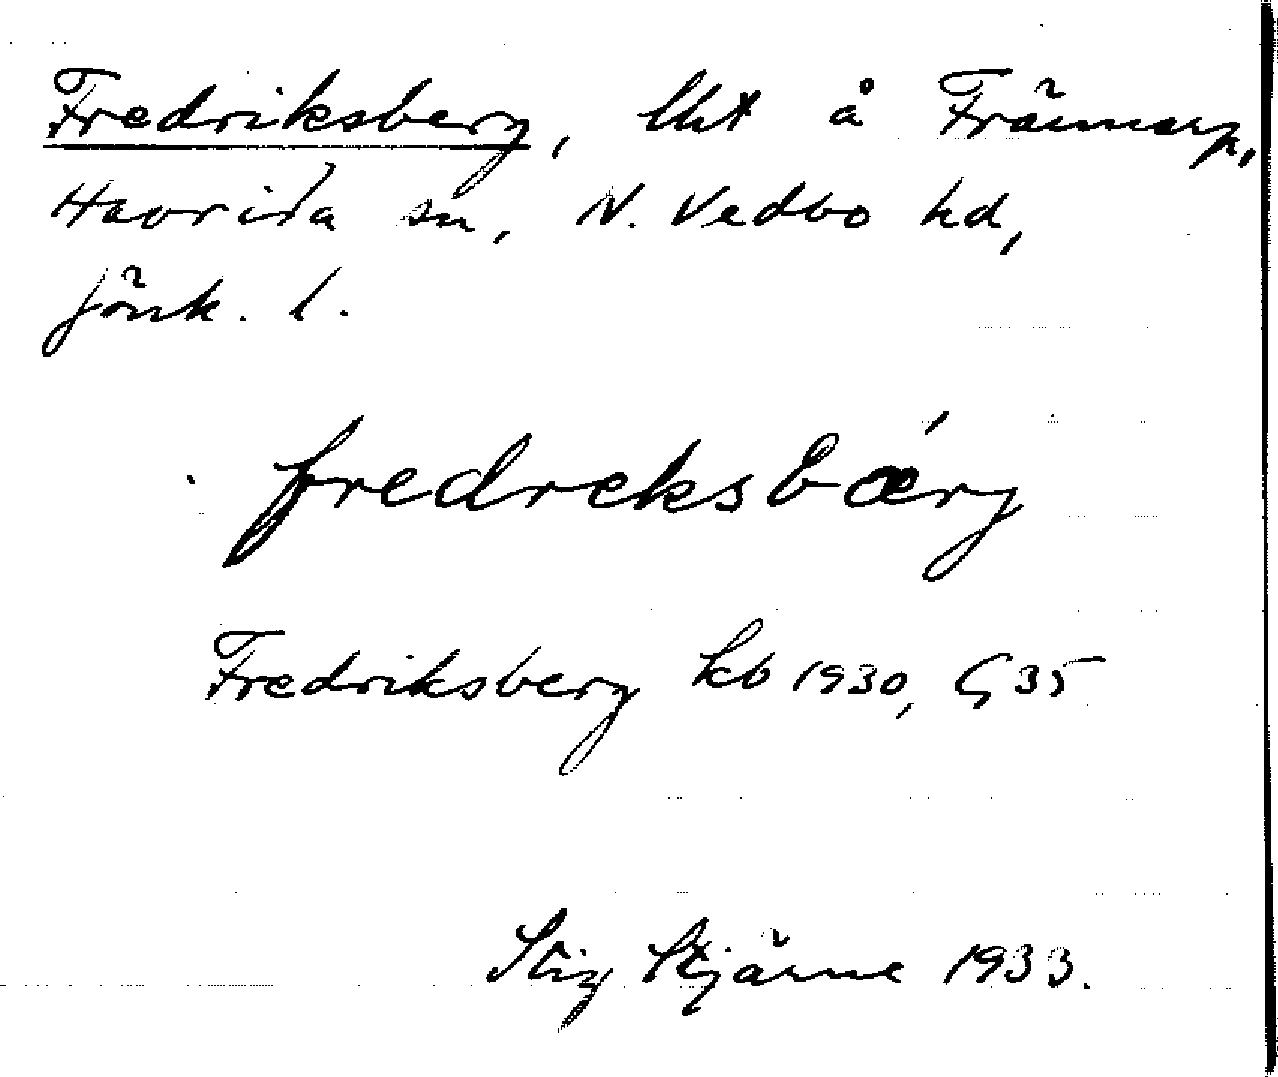 Fredriksberg, lht å Främmarp,
Haurida sn, N. Vedbo hd,
Jönk. l.
fredreksbǽrg
Fredriksberg kb 1930, G 35
Stig Stjärne 1933.